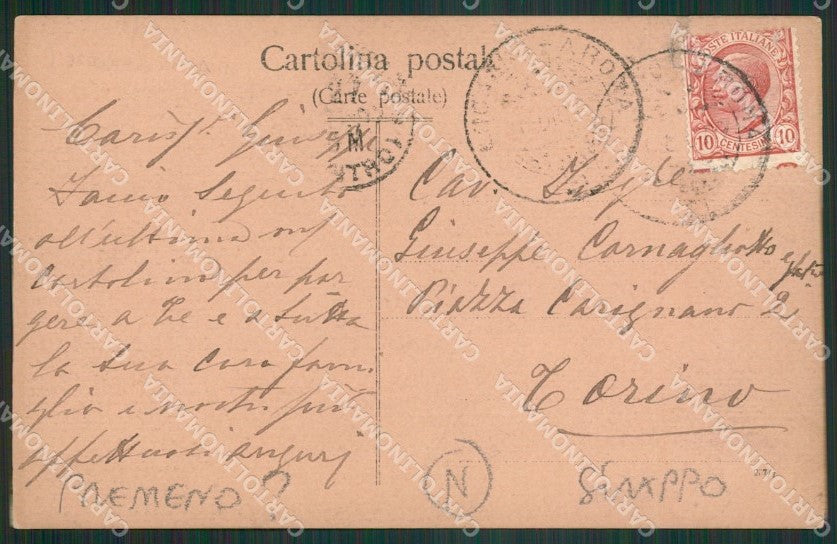 Cartolina postale
(Carte postale)
Cariss. Giuseppe
Faccio seguito
all'ultima
cartolina per por
gere a Te e a tutta
la tua cara fami
glia i nostri più
affettuosi auguri
Cav. Ing.
Giuseppe Cornagliotto
Piazza Carignano 2
Torino
POSTE ITALIANE
10 CENTESIMI 10
PREMENO?
N
CARTOLINOMANIA